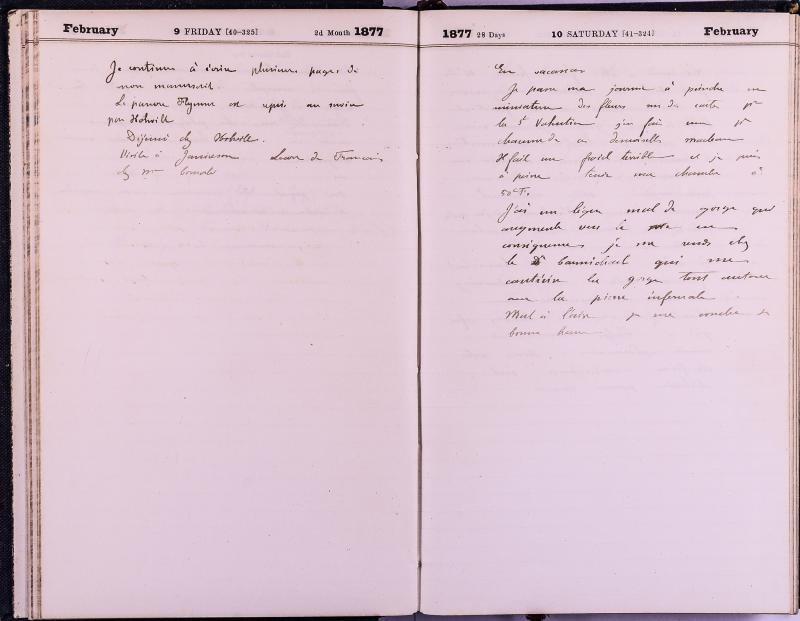 February 9 FRIDAY [40-325] 2d Month 1877
Je continue à écrire plusieurs pages de
mon manuscrit.
Le pauvre Flynn est repris au
par Holwill
Déjeuné chez Holwill.
Visite à Jamieson Leçon de Francais
chez Mme
1877 28 Days 10 SATURDAY [41-324] February
En vacances
Je passe ma journée à peindre en
miniature des fleurs sur des cartes pr
la St Valentin j'en fais une pr
chacune de ces demoiselles
Il fait un froid terrible et je puis
à peine tenir ma chambre à
50° F.
J'ai un léger mal de gorge qui
augmente vers le soir en
conséquence je me rends chez
le Dr Carmichael qui me
cautérise la gorge tout autour
avec la pierre infernale.
Mal à l'aise je me couche de
bonne heure